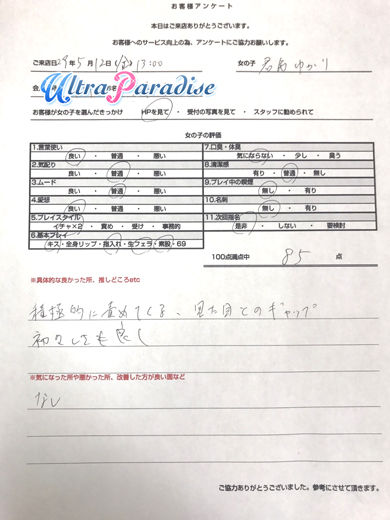 お客様アンケート
本日はご来店ありがとうございます。
お客様へのサービス向上の為、アンケートにご協力お願いします。
ご来店日 29年 5月 12日 (金) 13:00 女の子
Ultra Paradise
お客様が女の子を選んだきっかけ HPを見て ・ 受付の写真を見て ・ スタッフに勧められて
女の子の評価
1.言葉使い
良い ・ 普通 ・ 悪い
2.気配り
良い ・ 普通 ・ 悪い
3.ムード
良い ・ 普通 ・ 悪い
4.愛想
良い ・ 普通 ・ 悪い
5.プレイスタイル
イチャ×2 ・ 責め ・ 受け ・ 事務的
6.基本プレイ
キス・全身リップ・指入れ・生フェラ・素股・69
7.口臭・体臭
気にならない ・ 少し ・ 臭う
8.清潔感
有り ・ 普通 ・ 無し
9.プレイ中の喫煙
無し ・ 有り
10.名刺
無し ・ 有り
11.次回指名
是非 ・ しない ・ 要検討
100点満点中 85 点
※具体的な良かった所、推しどころetc
積極的に責めてくる、見た目とのギャップ
初々しさも良し
※気になった所や悪かった所、改善した方が良い面など
なし
ご協力ありがとうございました。参考にさせて頂きます。